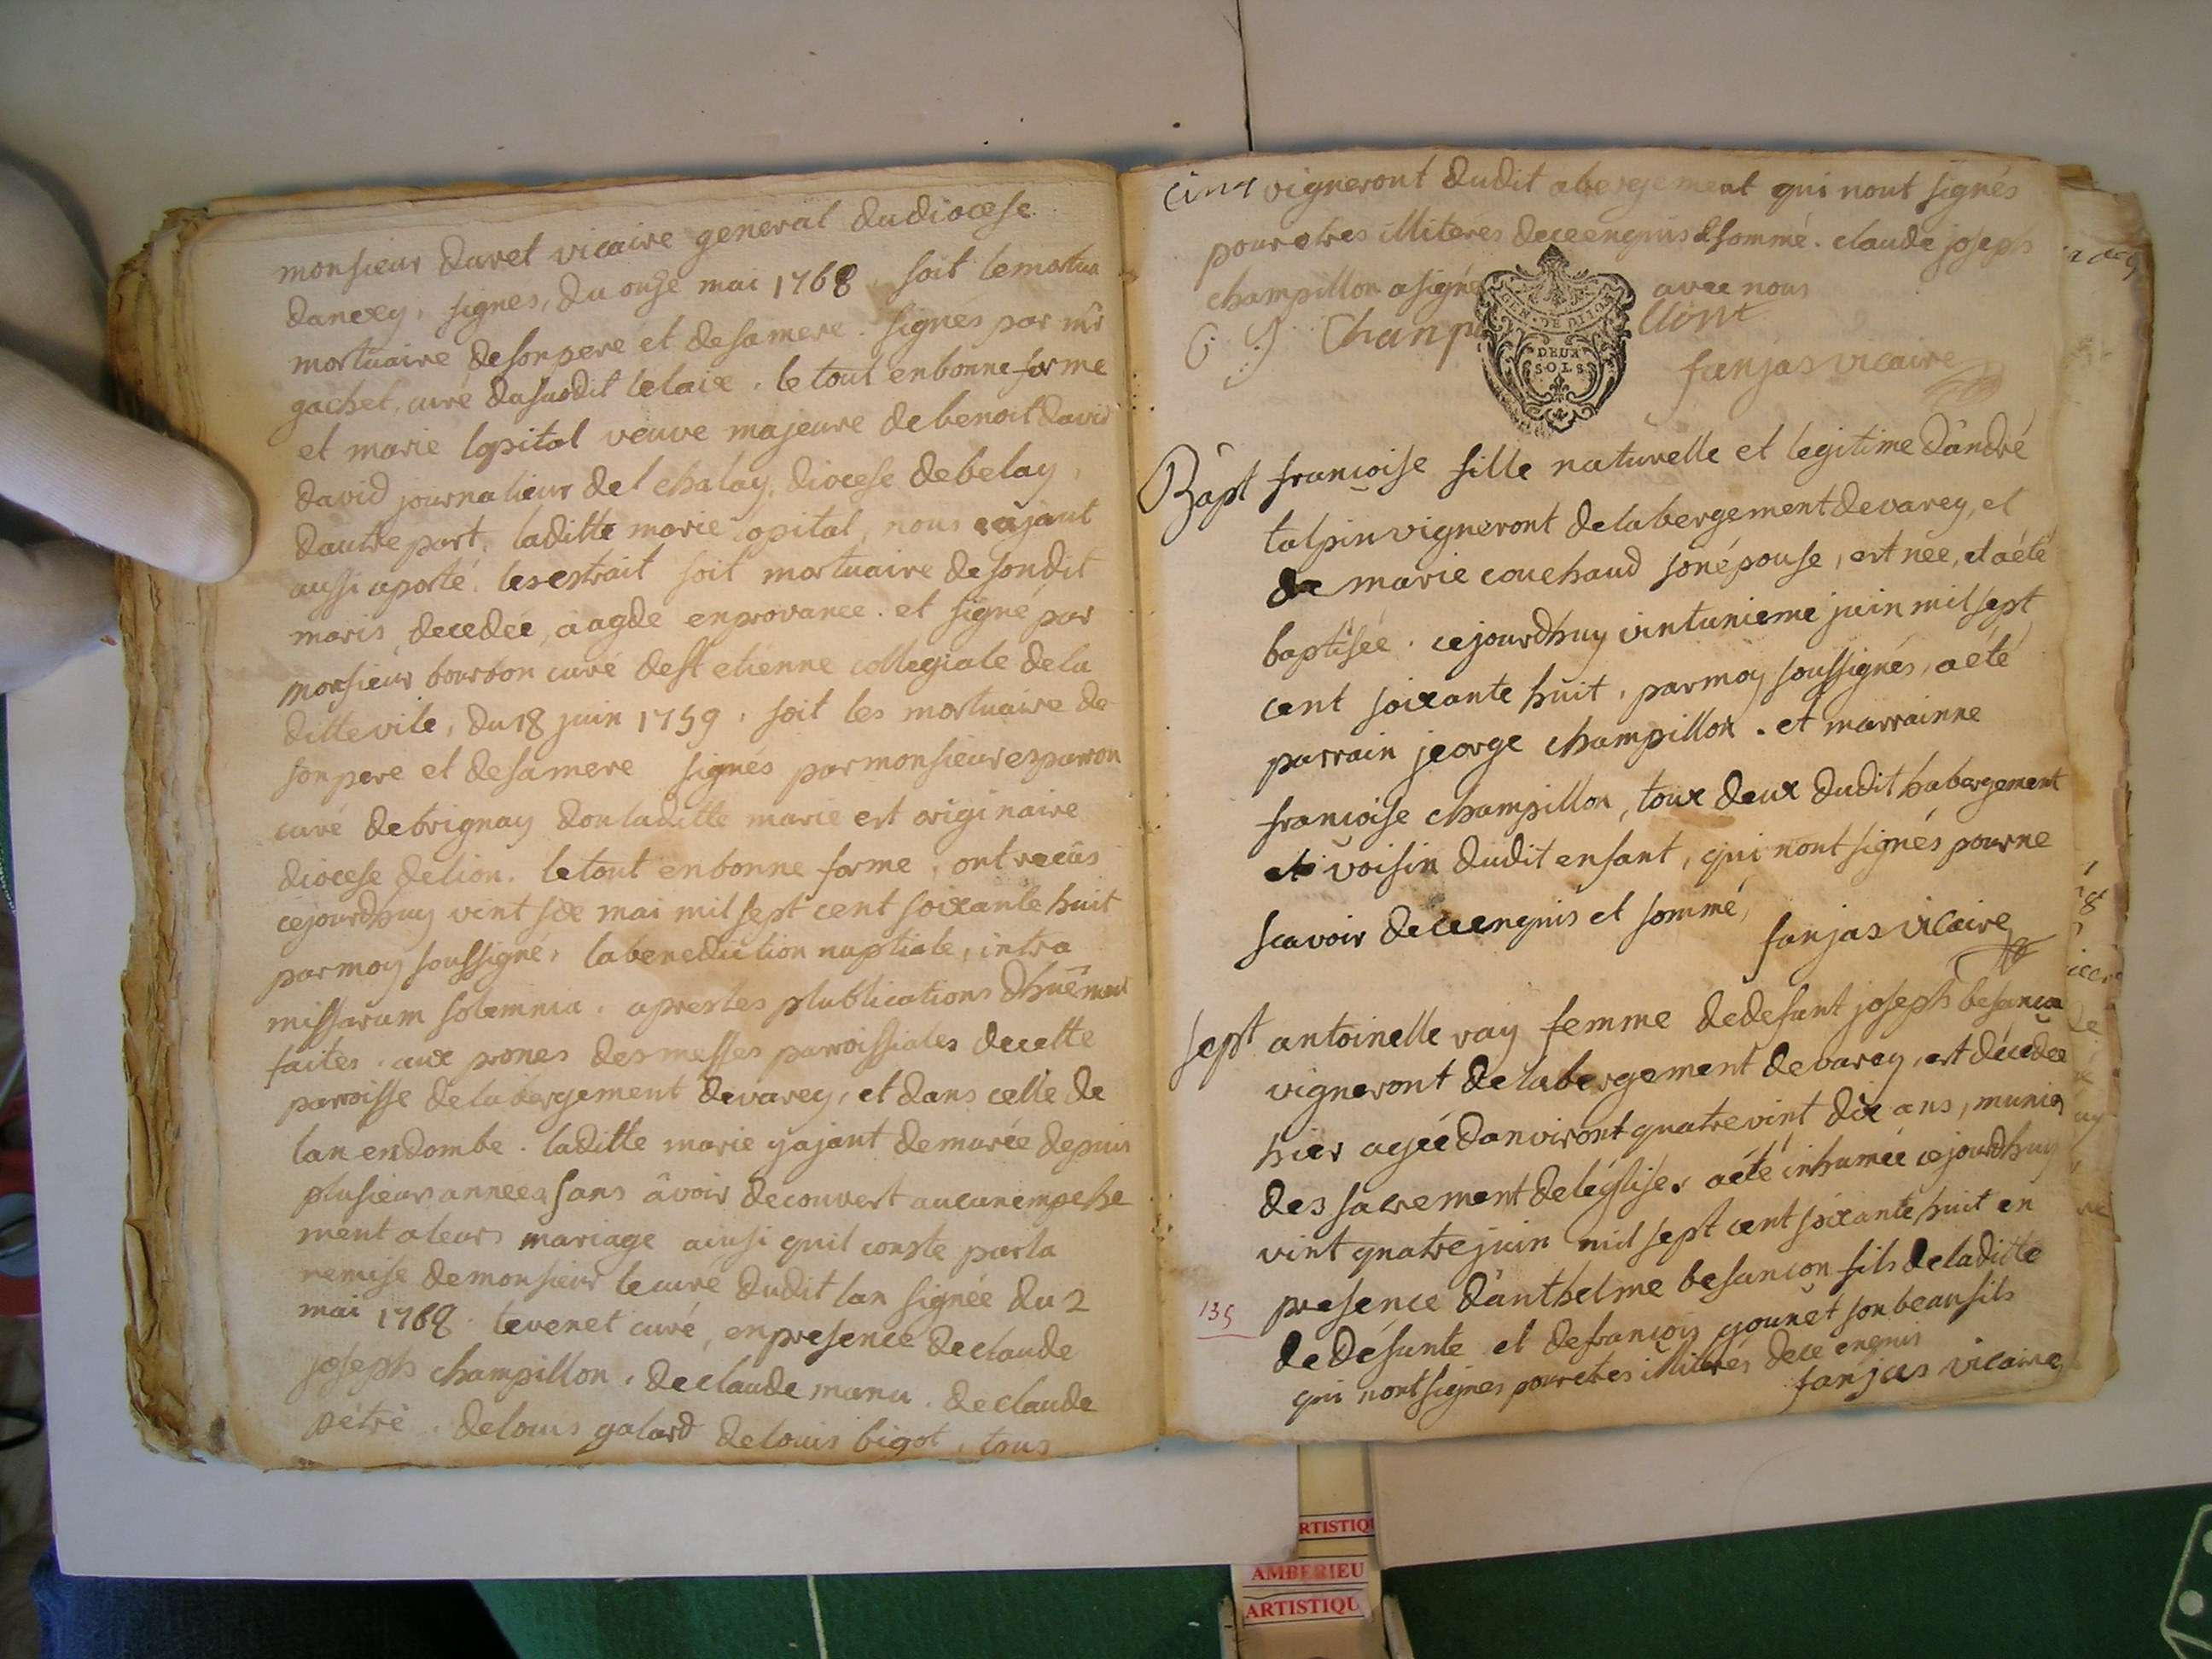 monsieur Davet vicaire general du diocese
danecy, signes, du onze mai 1768 soit le mortua
mortuaire de son pere et de sa mere. signés par mr
gachet, curé dusudit lelaix. le tout en bonne forme
et marie lopital veuve majeure de benoit david
david journalieur del chalay, diocese de belay,
dautre part, laditte marie lopital, nous ajant
aussi aporté. les estrait soit mortuaire de sondit
maris, decedée, a agde en provance. et signé par
monsieur bourbon curé de st etienne collegiale de la
ditte vile, du 18 juin 1759. soit les mortuaire de
son pere et de sa mere signés par monsieur esparron
curé de brignay dou laditte marie est originaire
diocese de lion. le tout en bonne forme, ont recûs
cejourdhuy vint six mai mil sept cent soixante huit
par moy soussigné, la benediction nuptiale, intra
missarum solemnia. apres les plublications dhuêment
faites. aux prones des messes parroissiales de cette
paroisse de labergement de varey, et dans celle de
lan en dombe. laditte marie y ajant demurée depuis
plusieurs années sans âvoir decouvert aucun empeche
ment a leurs mariage ainsi quil conste par la
remise de monsieur le curé dudit lan signée du 2
mai 1768. tevenet curé, en presence de claude
joseph champillon. de claude manu. de claude
pétré. de louis galard de louis bigot, tous
cinq vigneront dudit abergement qui nont signés
pour etres illiteres de ce enquis & sommé. claude joseph
champillon a signé avec nous
C. J. Champillont
DEUX
SOLS
fanjas vicaire
Bapt francoise fille naturelle et legitime dândré
talpin vigneront de labergement de varey, et
de marie couchaud son épouse, est née, et a été
baptisée. cejourdhuy vintunieme juin mil sept
cent soixante huit. par moy soussignés, a été
parrain jeorge champillon. et marrainne
francoise champillon, toux deux dudit habergement
et voisin dudit enfant, qui nont signés pour ne
scavoir de ce enquis et sommé,
fanjas vicaire
sept antoinette ray femme de defunt joseph besancon
vigneront de labergement de varey, est décédée
hier agée danviront quatre vint dix ans, munies
des sacrement de léglise. a été inhumée cejourdhuy
vint quatre juin mil sept cent soixante huit en
presence dânthelme besancon fils de laditte
135
de défunte et de francois gounet son beau fils
qui nont signés pour etres illiterés de ce enquis
fanjas vicaire
RTISTIQ
AMBERIEU
ARTISTIQU